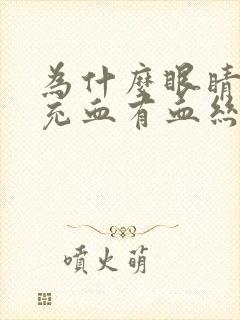 為什麼眼睛
充血有血絲
噴火萌